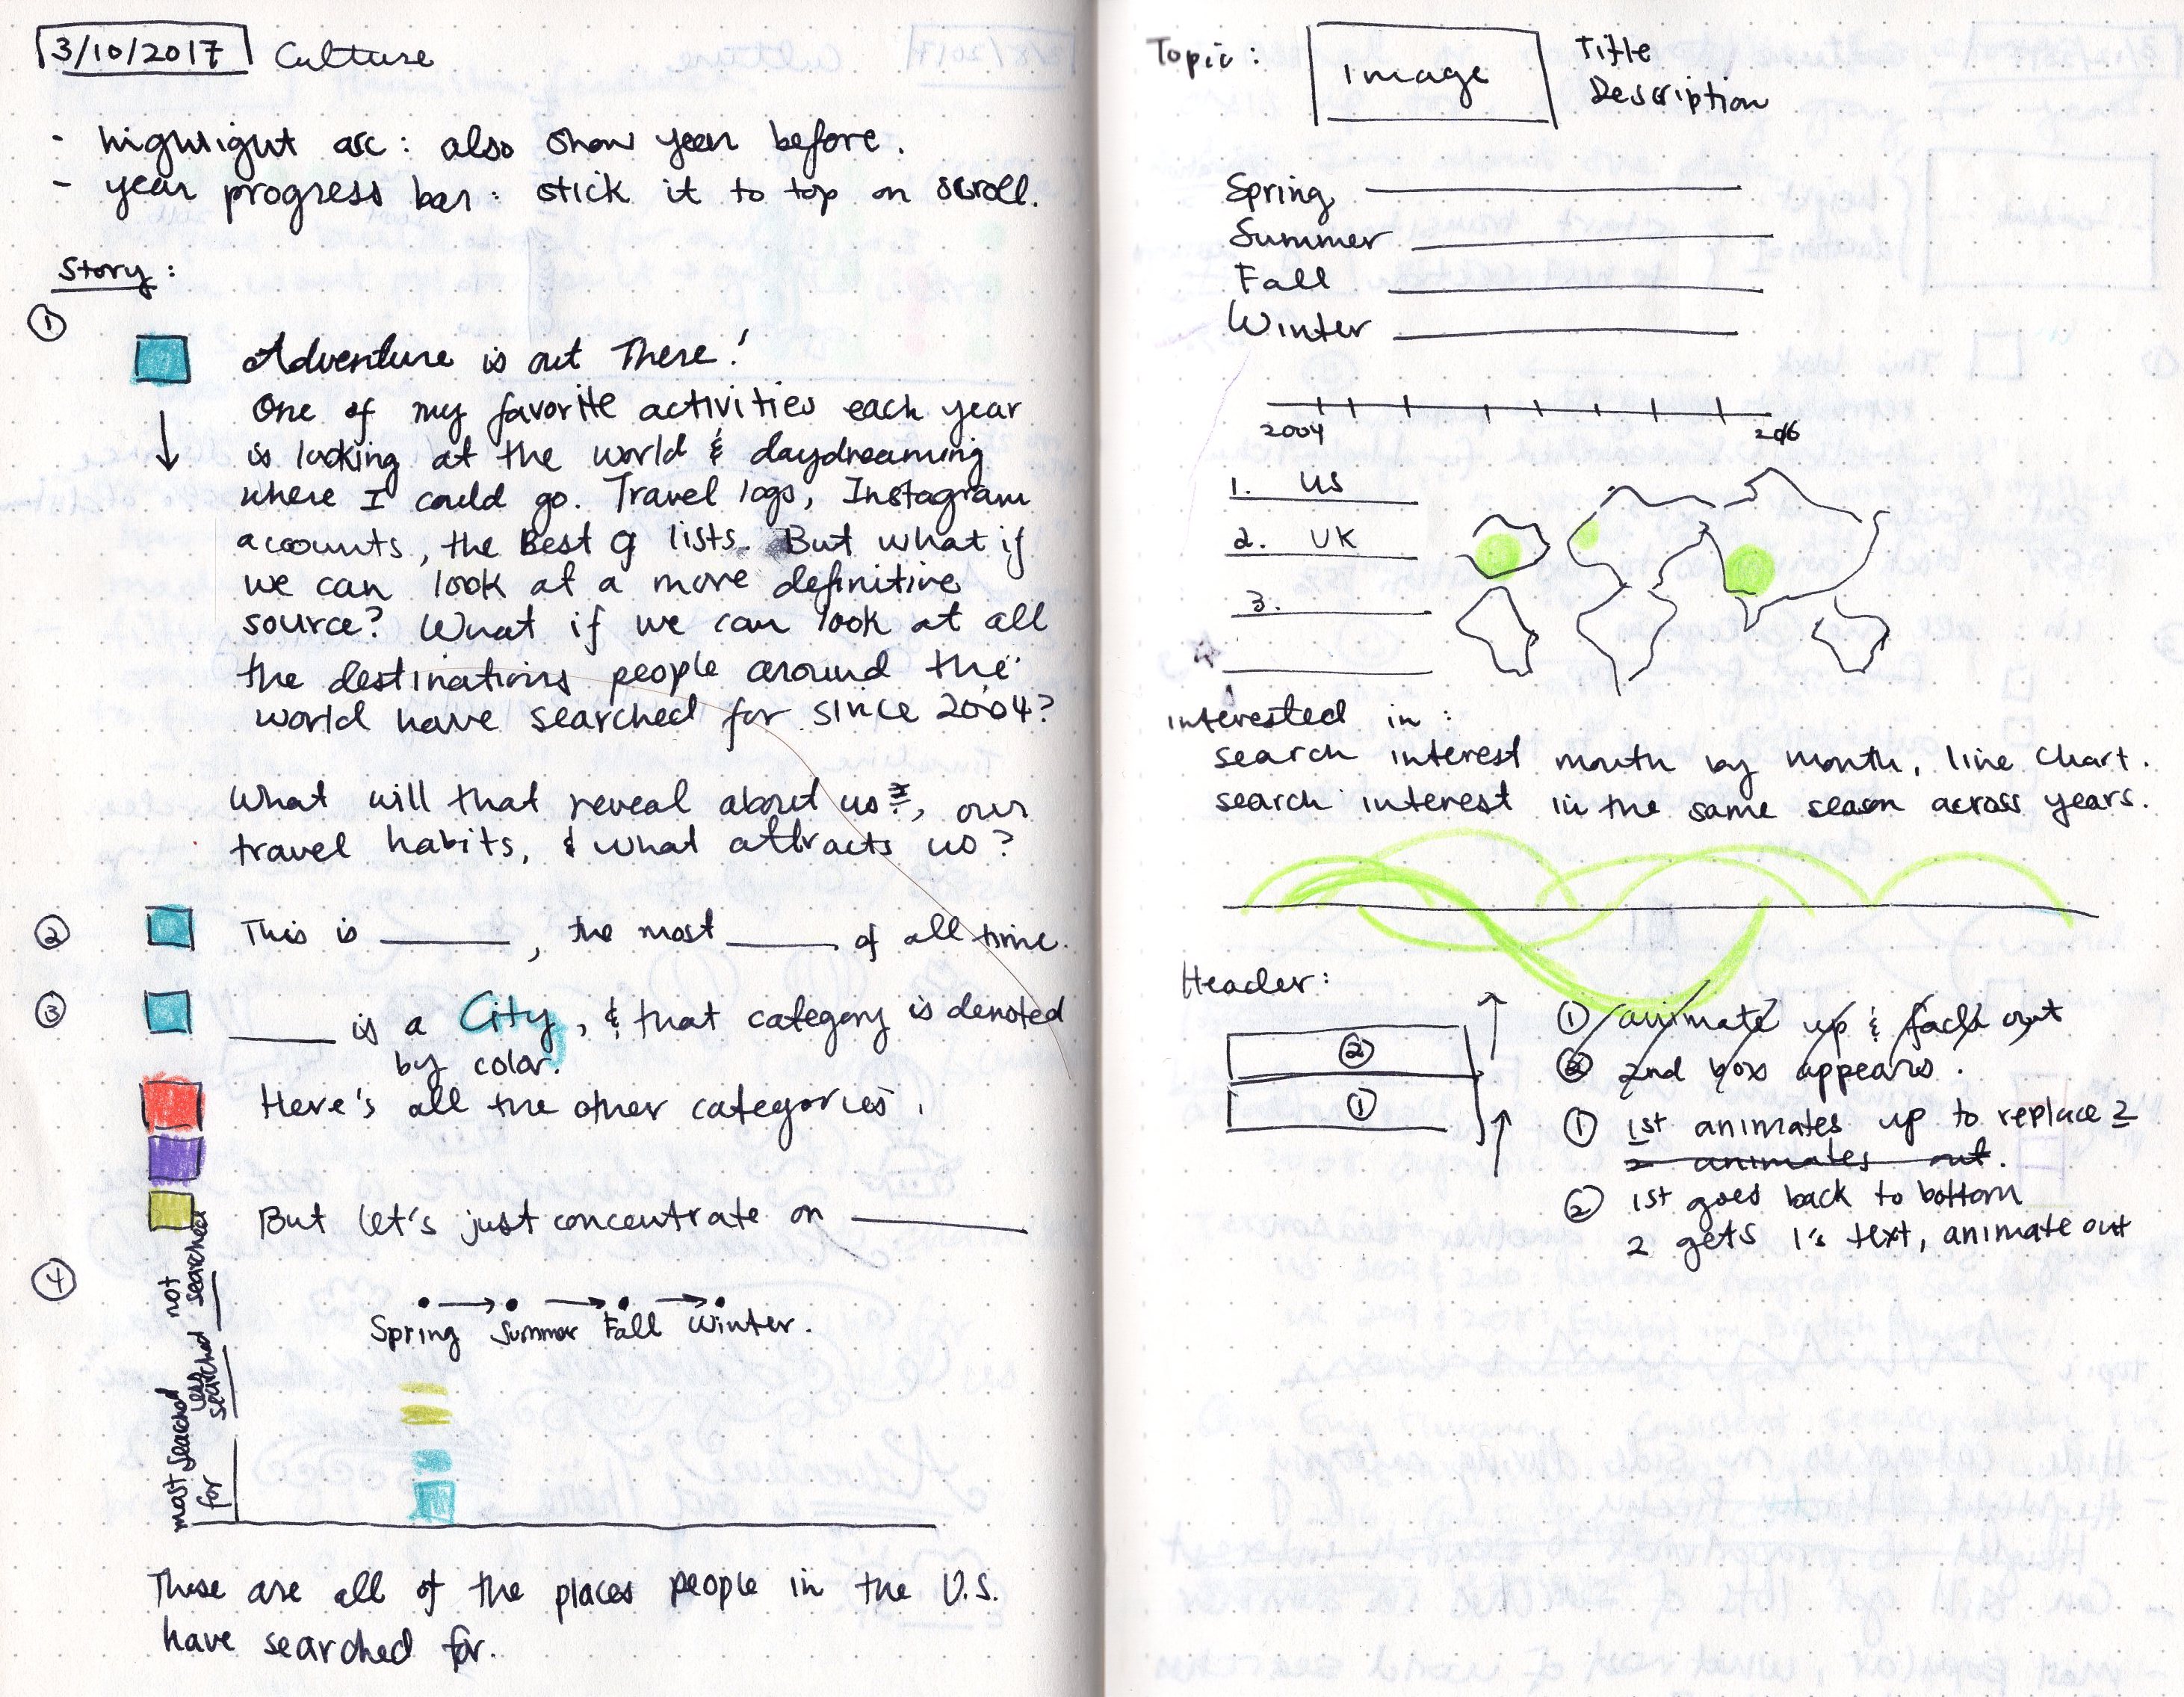 3/10/2017 Culture
- highlight arc: also show year before.
- year progress bar: stick it to top on scroll.
Story:
①
Adventure is out There!
One of my favorite activities each year
is looking at the world & daydreaming
where I could go. Travel logs, Instagram
accounts, the Best of lists. But what if
we can look at a more definitive
source? What if we can look at all
the destinations people around the
world have searched for since 2004?
What will that reveal about us, our
travel habits, & what attracts us?
② This is ______, the most ______ of all time.
③ ______ is a City, & that category is denoted
by color.
Here's all the other categories.
But let's just concentrate on ______
④
not searched
less searched
most seached for
Spring Summer Fall Winter.
These are all of the places people in the U.S.
have searched for.
Topic: Image Title
Description
Spring
Summer
Fall
Winter
2004 2016
1. US
2. UK
3.
interested in:
search interest month by month, line chart.
search interest in the same season across years.
Header:
②
①
① animate up & out
② 2nd box appears.
① 1st animates up to replace 2
2 animates out.
② 1st goes back to bottom
2 gets 1's text, animate out